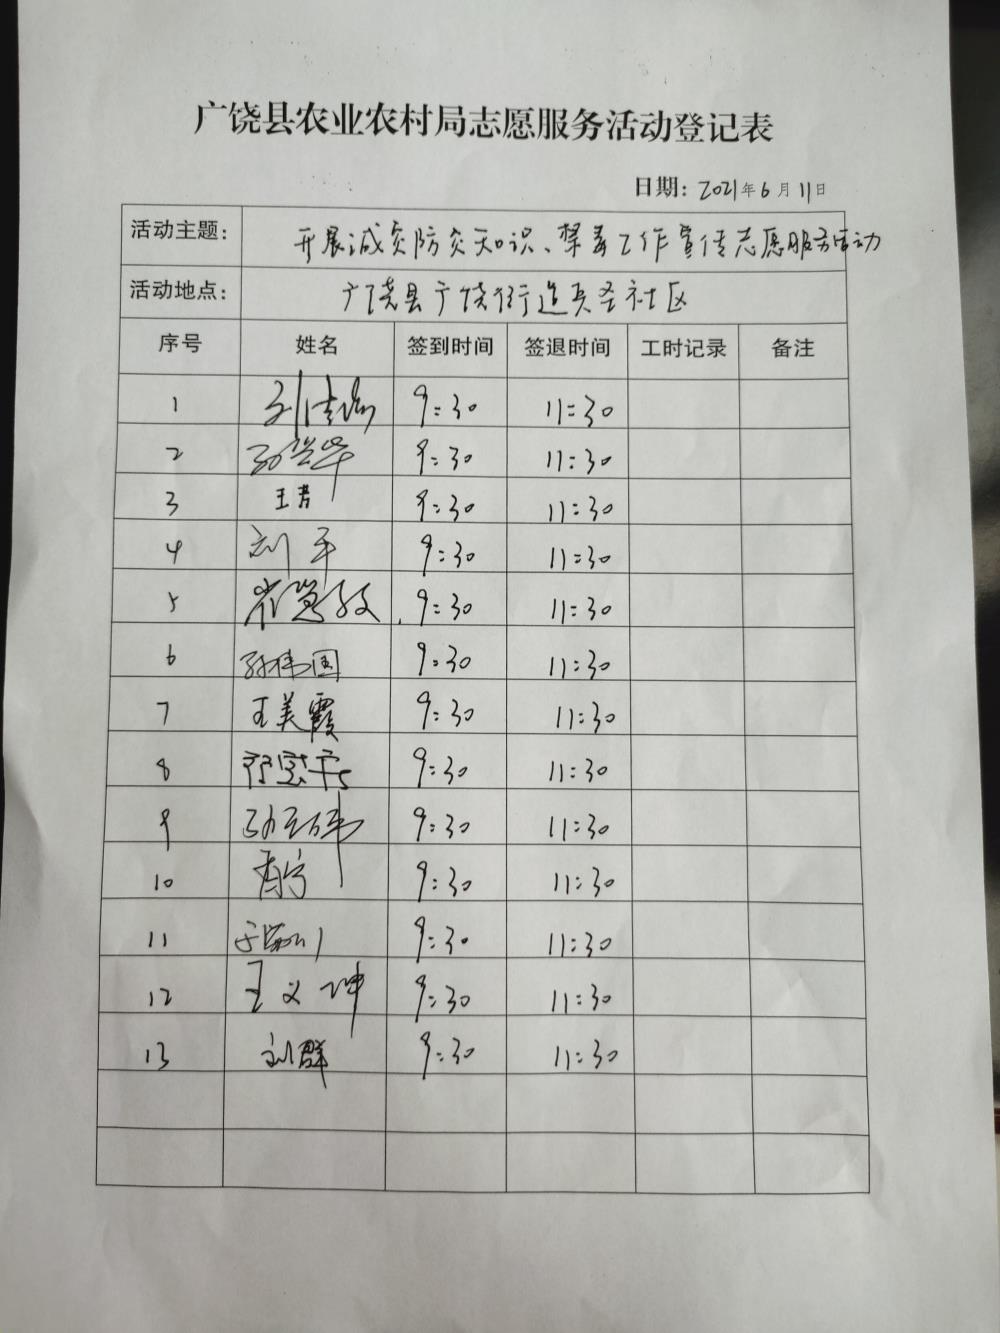 广饶县农业农村局志愿服务活动登记表
日期: 2021年6月11日
活动主题: 开展减灾防灾知识、禁毒工作宣传志愿服务活动
活动地点: 广饶县广饶街道兵圣社区
序号 姓名 签到时间 签退时间 工时记录 备注
1 9:30 11:30
2 9:30 11:30
3 王芳 9:30 11:30
4 刘平 9:30 11:30
5 9:30 11:30
6 孙伟国 9:30 11:30
7 王美霞 9:30 11:30
8 9:30 11:30
9 9:30 11:30
10 9:30 11:30
11 9:30 11:30
12 王义坤 9:30 11:30
13 刘群 9:30 11:30